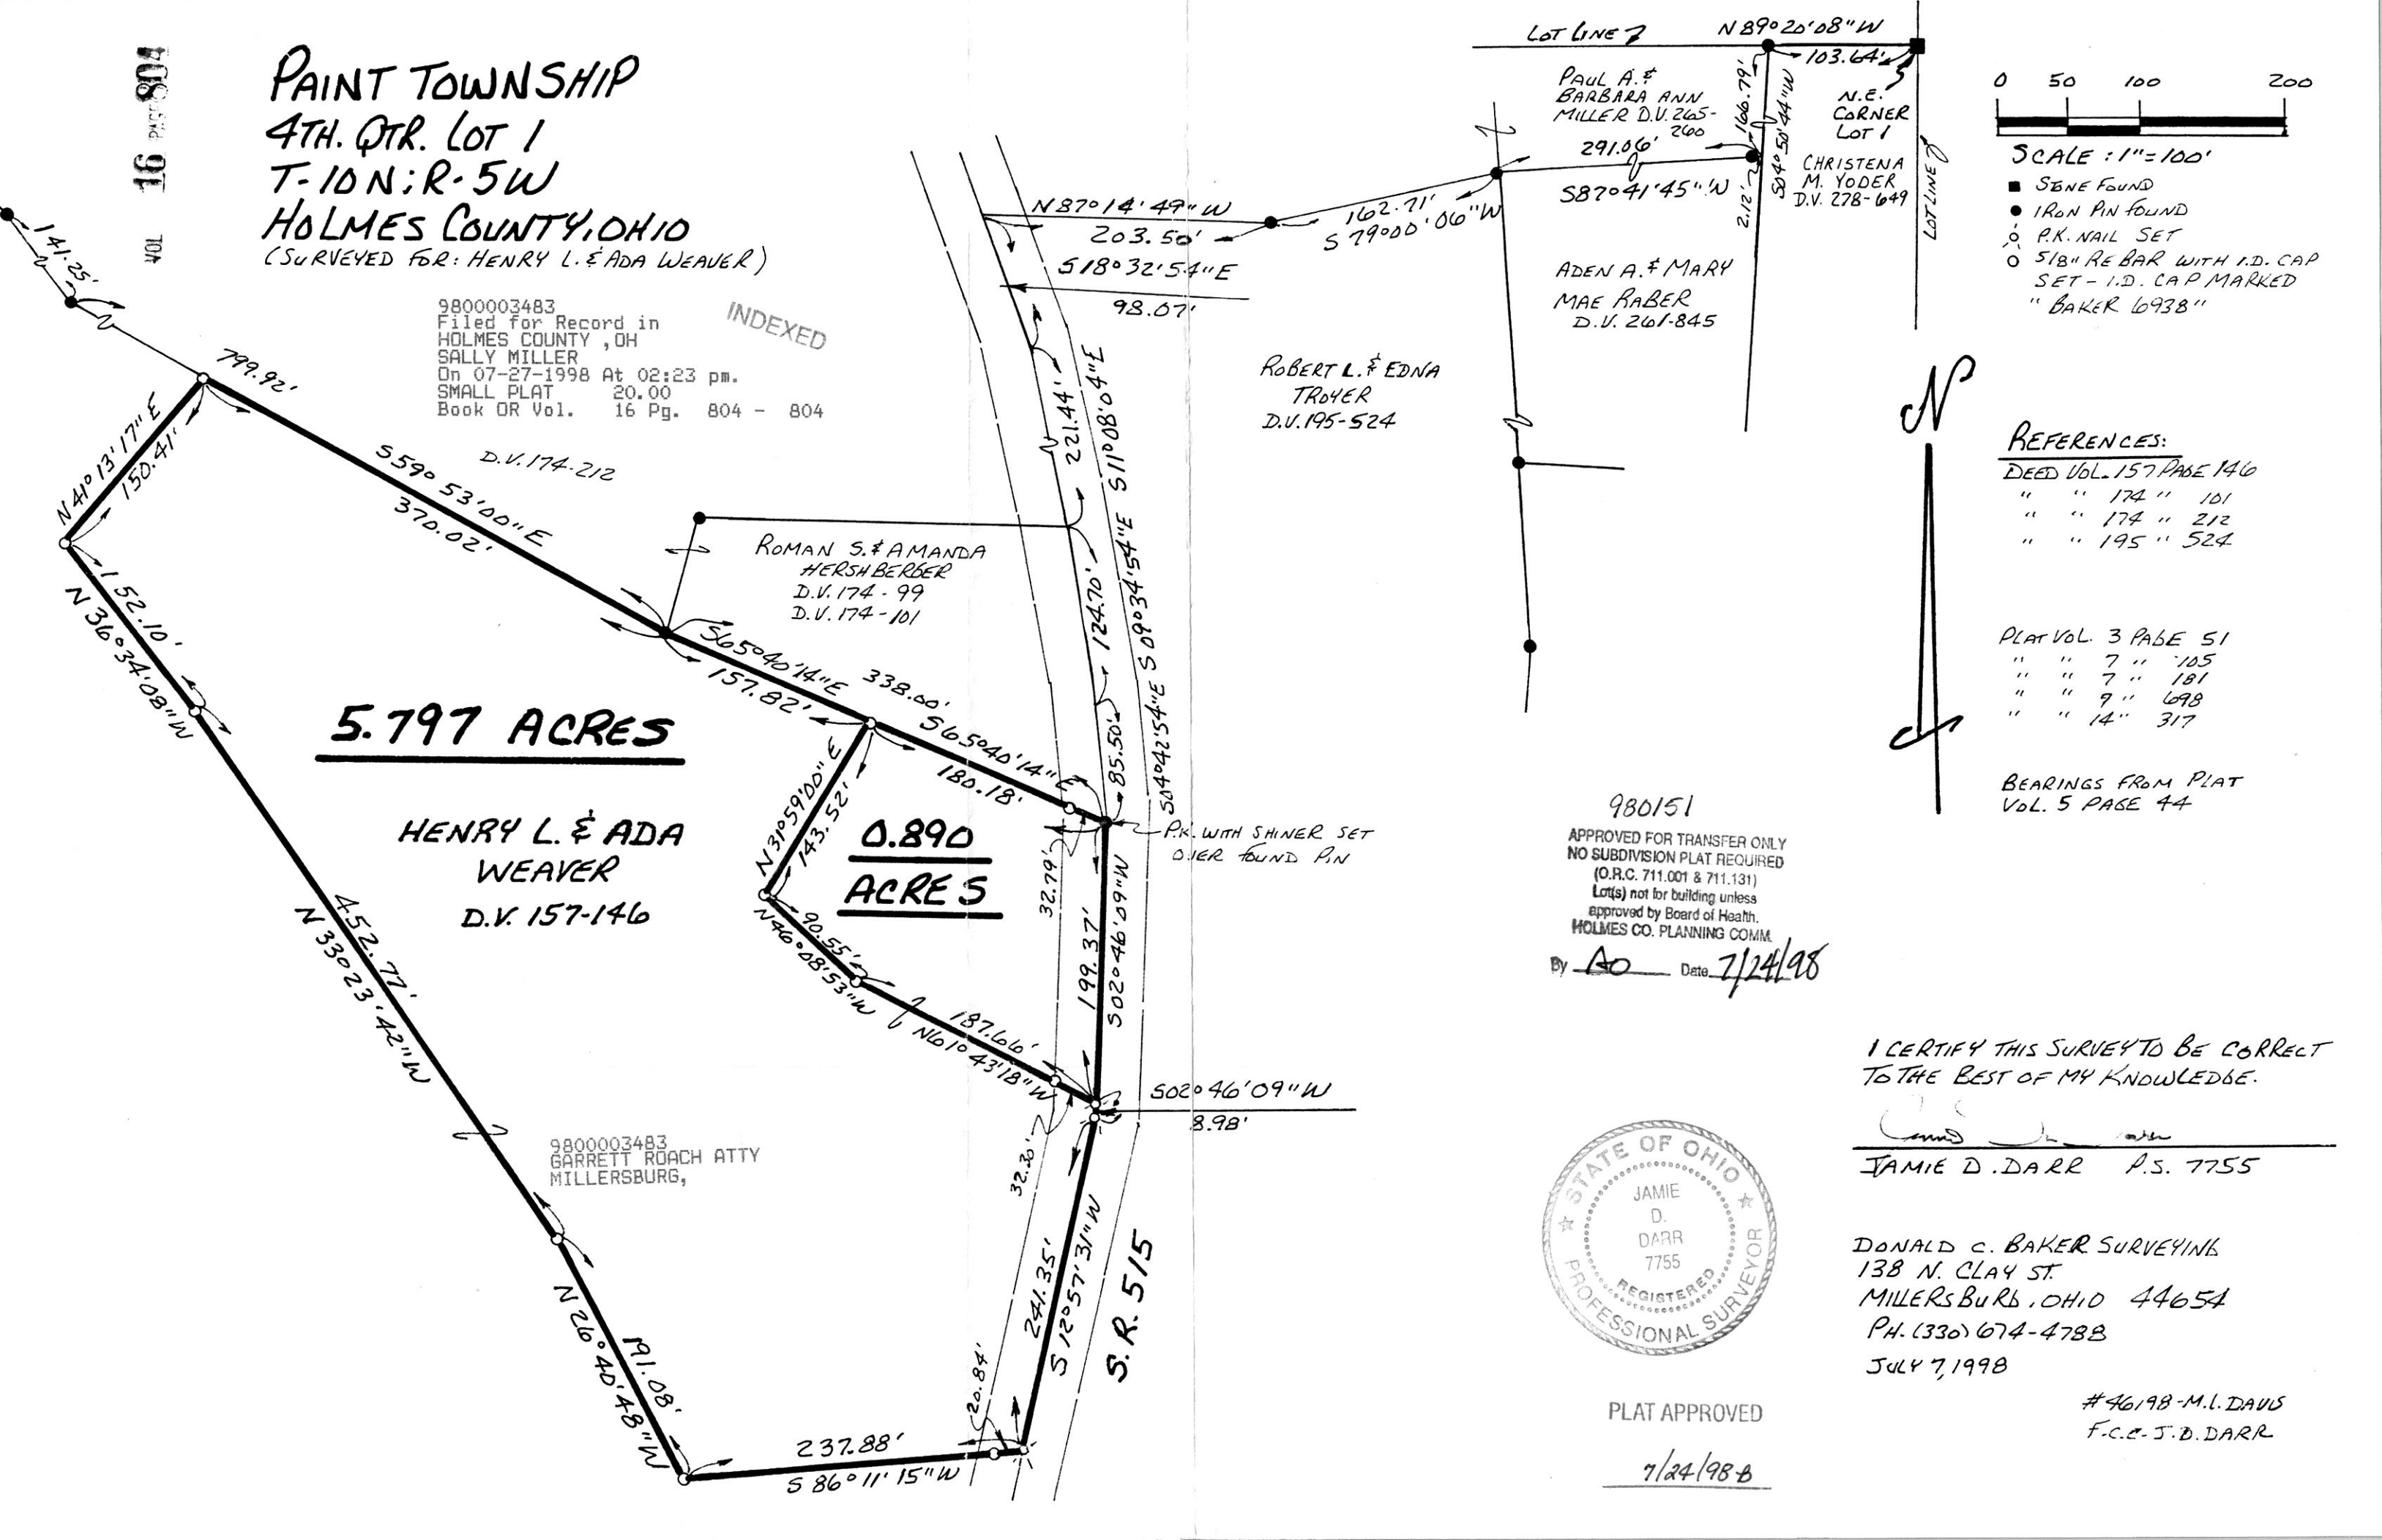 VOL 16 PAGE 804
PAINT TOWNSHIP
4TH. QTR. LOT 1
T-10N; R-5W
HOLMES COUNTY, OHIO
(SURVEYED FOR: HENRY L. & ADA WEAVER)
9800003483
Filed for Record in
HOLMES COUNTY ,OH
SALLY MILLER
On 07-27-1998 At 02:23 pm.
SMALL PLAT 20.00
Book OR Vol. 16 Pg. 804 - 804
INDEXED
141.25'
799.92'
N 41° 13' 17" E
150.41'
S 59° 53' 00" E
370.02'
D.V. 174-212
152.10'
N 36° 34' 08" W
ROMAN S. & AMANDA
HERSHBERGER
D.V. 174 - 99
D.V. 174 - 101
S 65° 40' 14" E
157.82'
338.00'
S 65° 40' 14" E
180.18'
5.797 ACRES
HENRY L. & ADA
WEAVER
D.V. 157-146
N 31° 59' 00" E
143.52'
0.890
ACRES
90.55'
N 46° 08' 53" W
187.66'
N 61° 43' 18" W
452.77'
N 33° 23' 42" W
9800003483
GARRETT ROACH ATTY
MILLERSBURG,
N 26° 40' 48" W
191.08'
237.88'
S 86° 11' 15" W
20.84'
241.35'
S 12° 57' 31" W
S.R. 515
32.20'
S 02° 46' 09" W
8.98'
199.37'
S 02° 46' 09" W
32.79'
P.K. WITH SHINER SET
OVER FOUND PIN
85.50'
S 04° 42' 54" E
124.70'
S 09° 34' 54" E
221.44'
S 11° 08' 04" E
N 87° 14' 49" W
203.50'
S 18° 32' 54" E
98.07'
162.71'
S 79° 00' 06" W
LOT LINE
N 89° 20' 08" W
103.64'
PAUL A. &
BARBARA ANN
MILLER D.V. 265-
260
291.06'
S 87° 41' 45" W
166.79'
S 04° 50' 44" W
2.12'
N.E.
CORNER
LOT 1
CHRISTENA
M. YODER
D.V. 278-649
LOT LINE
ADEN A. & MARY
MAE RABER
D.V. 261-845
ROBERT L. & EDNA
TROYER
D.V. 195-524
0 50 100 200
SCALE : 1"=100'
STONE FOUND
IRON PIN FOUND
P.K. NAIL SET
5/8" REBAR WITH I.D. CAP
SET - I.D. CAP MARKED
"BAKER 6938"
N
REFERENCES:
DEED VOL. 157 PAGE 146
" " 174 " 101
" " 174 " 212
" " 195 " 524
PLAT VOL. 3 PAGE 51
" " 7 " 105
" " 7 " 181
" " 9 " 698
" " 14 " 317
BEARINGS FROM PLAT
VOL. 5 PAGE 44
980151
APPROVED FOR TRANSFER ONLY
NO SUBDIVISION PLAT REQUIRED
(O.R.C. 711.001 & 711.131)
Lot(s) not for building unless
approved by Board of Health.
HOLMES CO. PLANNING COMM.
By AO Date 7/24/98
I CERTIFY THIS SURVEY TO BE CORRECT
TO THE BEST OF MY KNOWLEDGE.
JAMIE D. DARR P.S. 7755
STATE OF OHIO
JAMIE
D.
DARR
7755
REGISTERED
PROFESSIONAL SURVEYOR
DONALD C. BAKER SURVEYING
138 N. CLAY ST.
MILLERSBURG, OHIO 44654
PH. (330) 674-4788
JULY 7, 1998
#46198-M.L. DAVIS
F.C.C- J.D. DARR
PLAT APPROVED
7/24/98